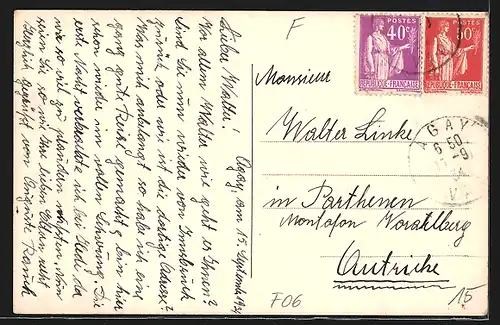 F
POSTES
40c
REPUBLIQUE-FRANÇAISE
POSTES
50c
REPUBLIQUE-FRANÇAISE
AGAY
6 50
-9
34
Agay, am 15. September 1934
Lieber Walter!
Vor allem Walter wie geht es Ihnen?
Sind Sie nun wieder von Innsbruck
zurück oder wie ist die dortige
Was mich anbelangt so habe ich eine
ganz gute Reise gemacht & bin hier
schon wieder im vollen Schwung. Die
erste Nacht verbrachte ich bei Hedi, da
wir so viel zu plaudern wußten,
seien Sie so wie Ihre lieben Eltern nebst
herzlich gegrüßt von
Monsieur
Walter Linke
in Parthenen
Montafon Vorarlberg
Autriche
F06
15